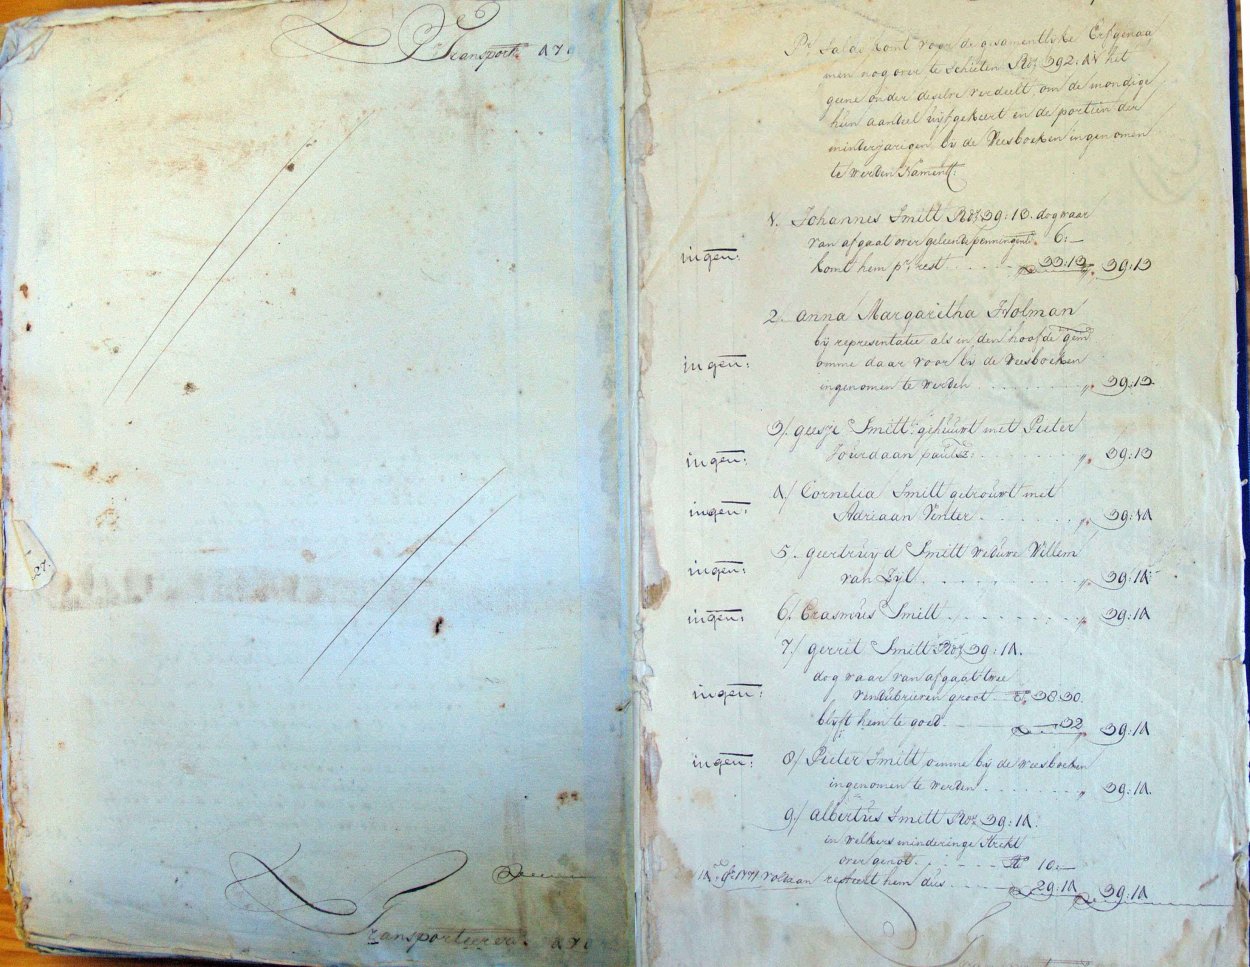 Pr. Transport.
Pr. Saldo komt voor de gesamentlijke Erfgenaa
men nog over te schieten Rds. 392: 1 het
geene onder deselve verdeelt om de mondige
hun aandeel uijtgekeert en de portien der
minderjarigen bij de Weesboeken ingenomen
te werden Namentl:
1. Johannes Smitt Rds. 39: 13. dog waar
van afgaat over geleende penningen 6:—
ingen: komt hem pr. rest 33:13 „ 39:13
2. Anna Margaretha Holman
bij representatie als in den hoofde gem.
ingen: omme daar voor bij de Weesboeken
ingenomen te werden „ 39.13.
3/ Geesje Smitt: gehuwt met Pieter
ingen: Jourdaan paulsz: „ 39:13
4/ Cornelia Smitt getrouwt met
ingen: Adriaan Venter „ 39:14
5. Geertruyd Smitt weduwe Willem
ingen: van Zijl „ 39:14
ingen: 6/ Erasmus Smitt „ 39:14
7/ Gerrit Smitt Rds. 39:14.
dog waar van afgaat twee
ingen: vendubrieven groot 38 30.
blijft hem te goed 32 „ 39:14
ingen: 8/ Pieter Smitt omme bij de weesboeken
ingenomen te werden „ 39:14.
9/ Albertus Smitt Rds. 39:14.
in welkers mindering strekt
over genot 10:—
voldaan resteert hem dus 29:14 39:14
Transporteere